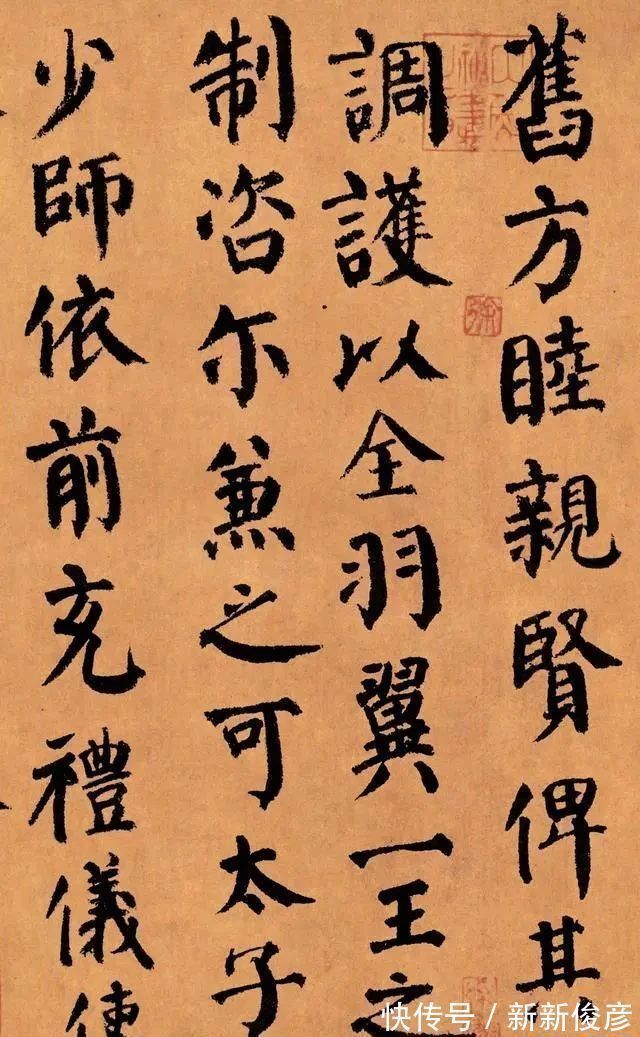 舊方睦親賢俾其
調護以全羽翼一王之
制咨尔兼之可太子
少師依前充禮儀使
快传号 / 新新俊彦